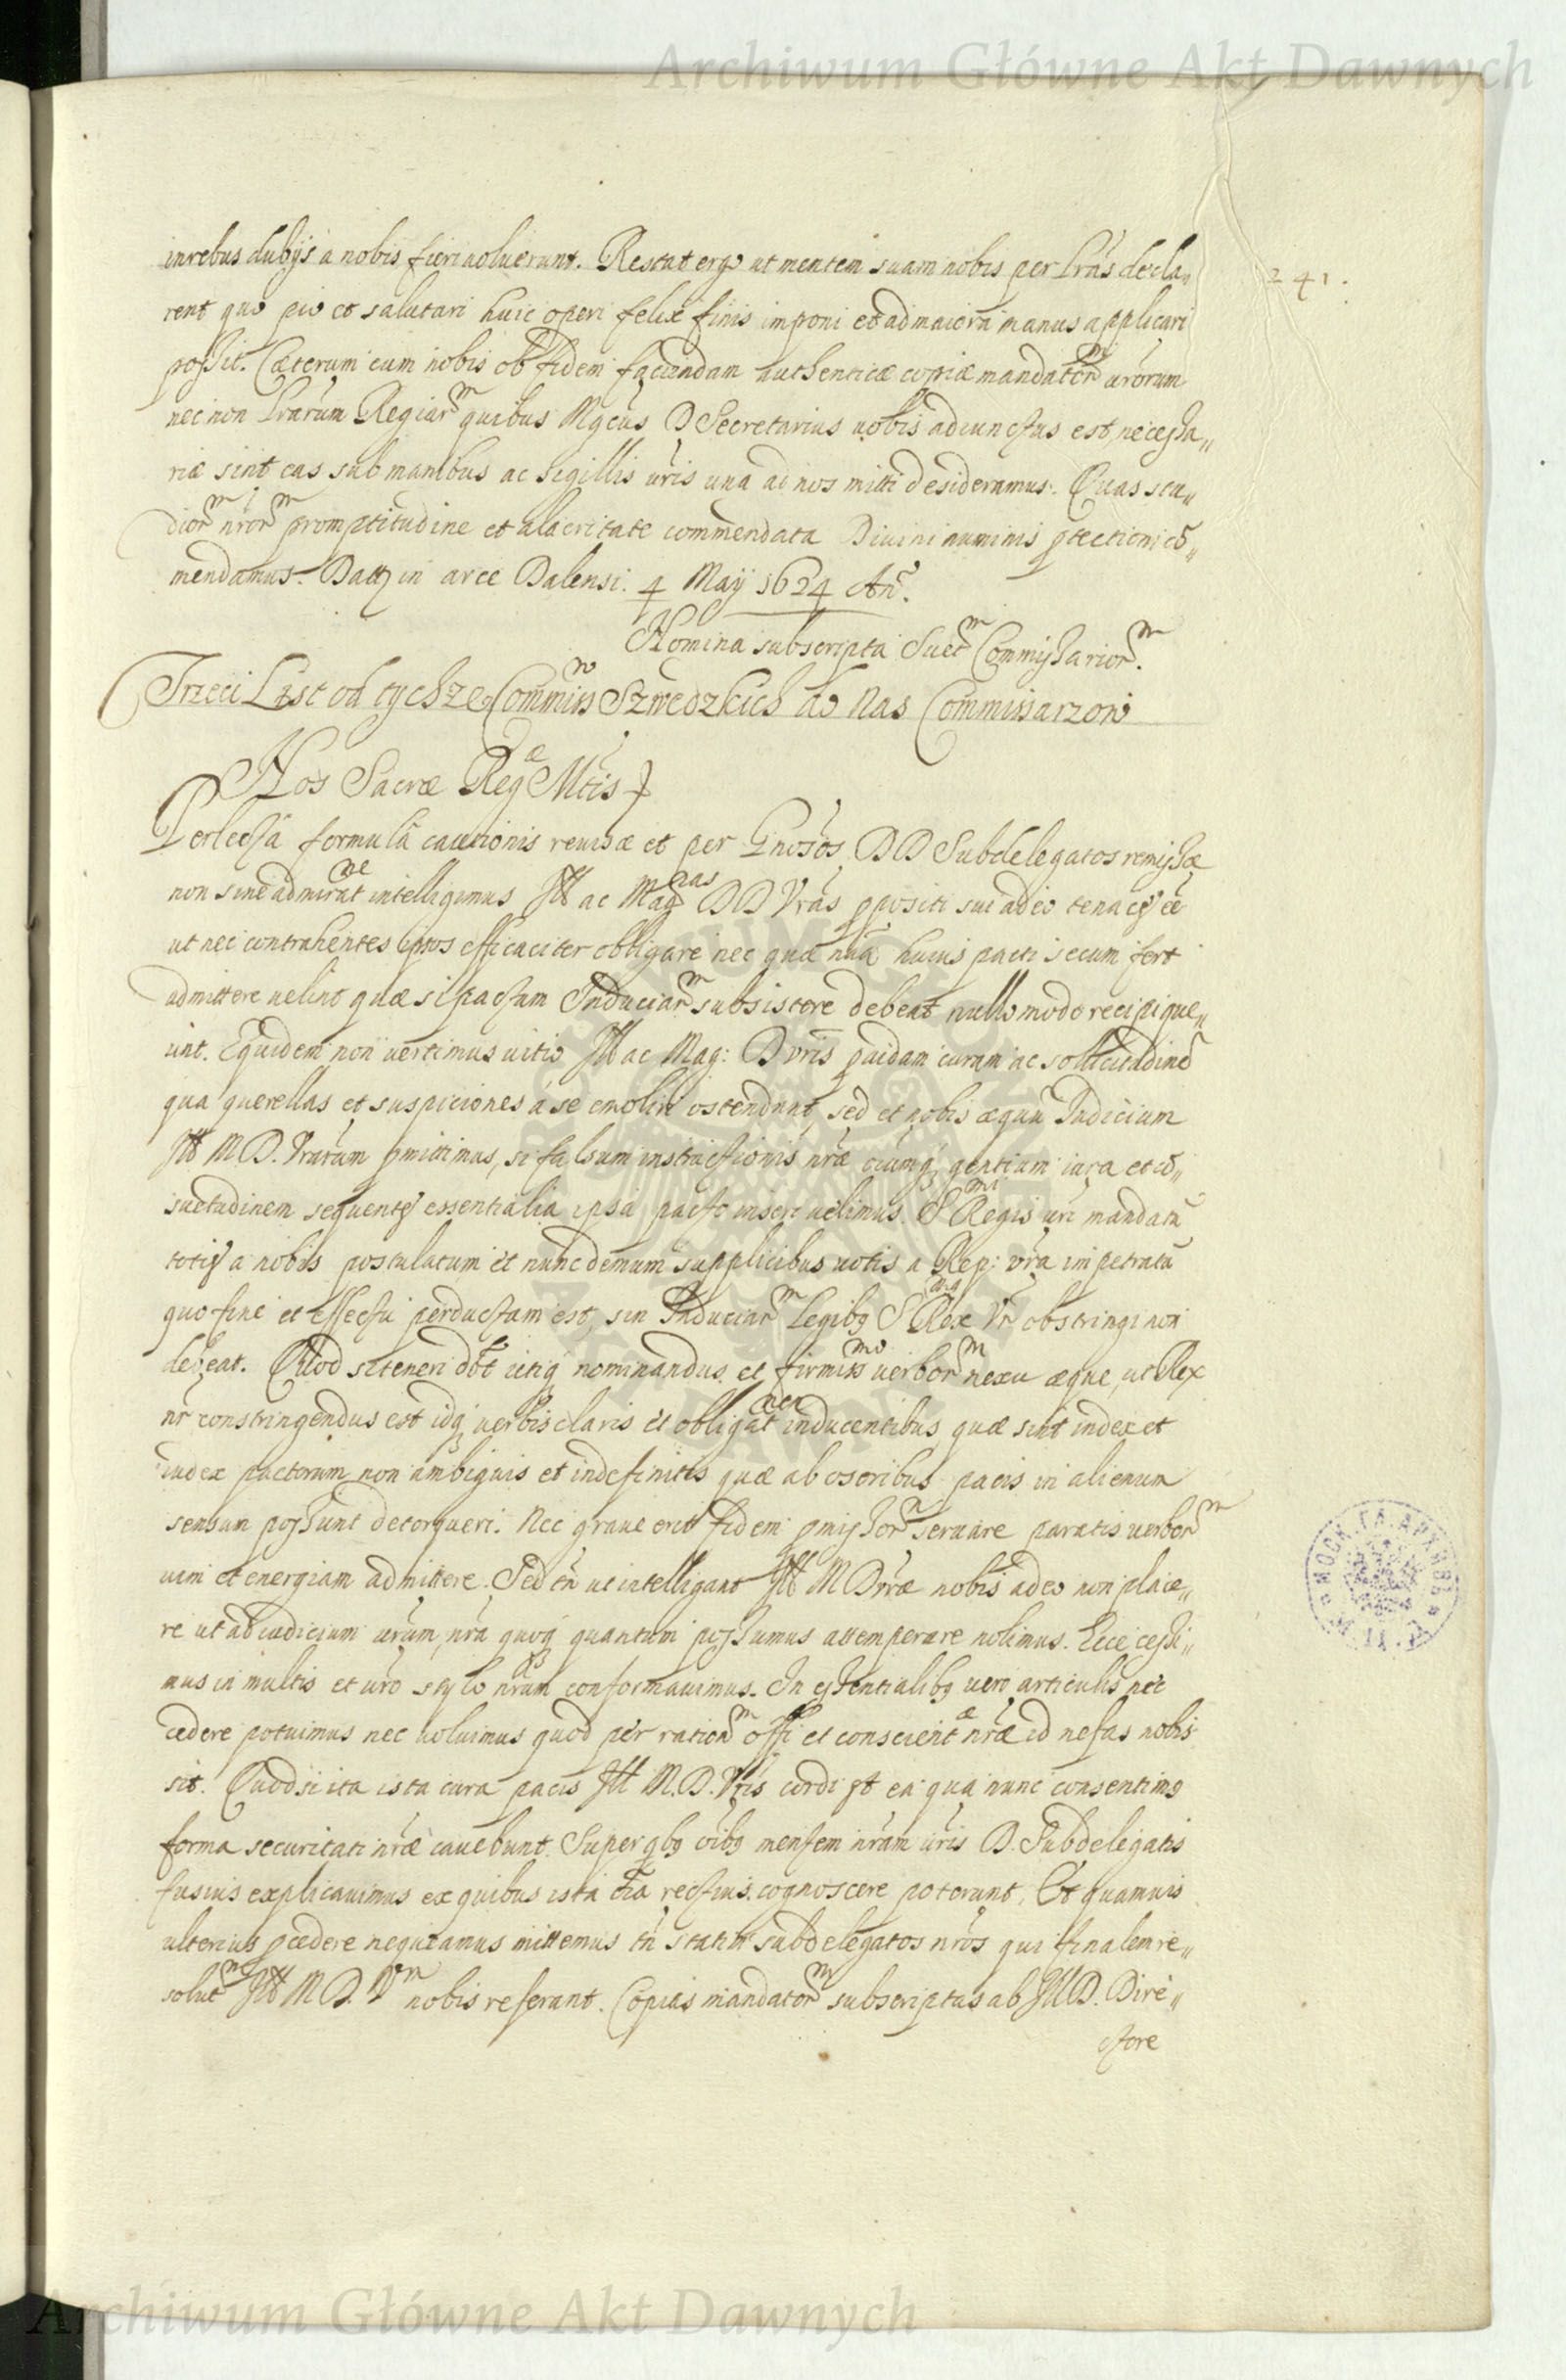 Archiwum Główne Akt Dawnych
241.
in rebus dubijs a nobis fieri uoluerunt. Restat ergo ut mentem suam nobis per lr̃as decla„
rent quo pio et salutari huic operi felix finis imponi et ad maiora manus applicari
possit. Cæterum cum nobis ob fidem faciendam authenticæ copiæ mandatorᵐ ur̃orum
nec non lr̃arum Regiarᵐ quibus Mgcus D Secretarius uobis adiunctus est, necessa„
riæ sint eas sub manibus ac sigillis ur̃is una ad nos mitti desideramus. Quas stu„
diorᵐ nr̃orᵐ promptitudine et alacritate commendata Diuini numinis ꝓtectioni cõ„
mendamus. Datt in arce Dalensi. 4 Maij 1624 An̄.
Nomina subscripta Suetᵐ Commissariorᵐ.
Trzeci List od tychze Commissʷ Szwedzkich do Nas Commissarzow
Nos Sacræ Regᵉ Mtis
Perlectâ formulâ cautionis reuisæ et per Gnosos DD Subdelegatos remissæ
non sine admiratⁿᵉ intelligimus Ill ac Magⁿᵃˢ DD Vr̃as ꝓpositi sui adeo tenaces eẽ
ut nec contrahentes ipsos efficaciter obligare nec quæ nũa huius pacti secum fert
admittere uelint quæ si pactum Induciarᵐ subsistere debeat nullo modo recipi que„
unt. Equidem non uertimus uitio Ill ac Mag: D vr̃is ꝗuidam curam ac sollicitudinẽ
qua querellas et suspiciones a se emoliri ostendunt, sed et nobis æquũ Iudicium
Ill M D. Vrarum ꝓmittimus, si falsum instructionis nr̃æ oiumqꝫ gentium iura et cõ„
suetudinem sequentes essentialia ipsa pacto inseri uelimus. Sᵐⁱ Regis ur̃i mandatũ
toties a nobis postulatum et nunc demum supplicibus uotis a Rep: vr̃a impetratũ
quo fine et effectu perductum est, sin Induciarᵐ legibꝫ Sᵐᵘˢ Rex Vr̃ obstringi non
debeat. Quod si teneri dbt utiqꝫ nominandus et firmissᵐᵒ uerborᵐ nexu æque, ut Rex
nr̃ constringendus est idqꝫ uerbis claris et obligatⁿᵉᵐ inducentibus quæ sint index et
iudex pactorum non ambiguis et indefinitis quæ ab osoribus pacis in alienum
sensum possunt detorqueri. Nec graue erit fidem ꝓmissorᵐ seruare paratis uerborᵐ
uim et energiam admittere. Sed tñ ut intelligant Ill M D vr̃æ nobis adeo non place„
re ut ad iudicium ur̃um, nr̃a quoqꝫ quantum possumus attemperare nolimus. Ecce cessi„
mus in multis et ur̃o stylo nr̃um conformauimus. In essentialibꝫ uero articulis nec
cedere potuimus nec uoluimus quod per rationᵐ offi et conscientᵃᵉ nr̃æ id nefas nobis
sit. Quod si ita ista cura pacis Ill M. D. Vr̃is cordi st ea qua nunc consentimꝫ
forma securitati nr̃æ cauebunt. Super qbꝫ oibꝫ mentem nr̃am ur̃is D. Subdelegatis
fusius explicauimus ex quibus ista oĩa rectius cognoscere poterunt. Et quamuis
ulterius ꝓcedere nequeamus mittemus tñ statim subdelegatos nr̃os qui finalem re„
solutⁿᵉᵐ Ill M D. Vᵐ nobis referant. Copias mandatorᵐ subscriptas ab Ill D. Dire„
ctore
МОСК. ГЛ. АРХИВЪ М. И. Д.
Archiwum Główne Akt Dawnych